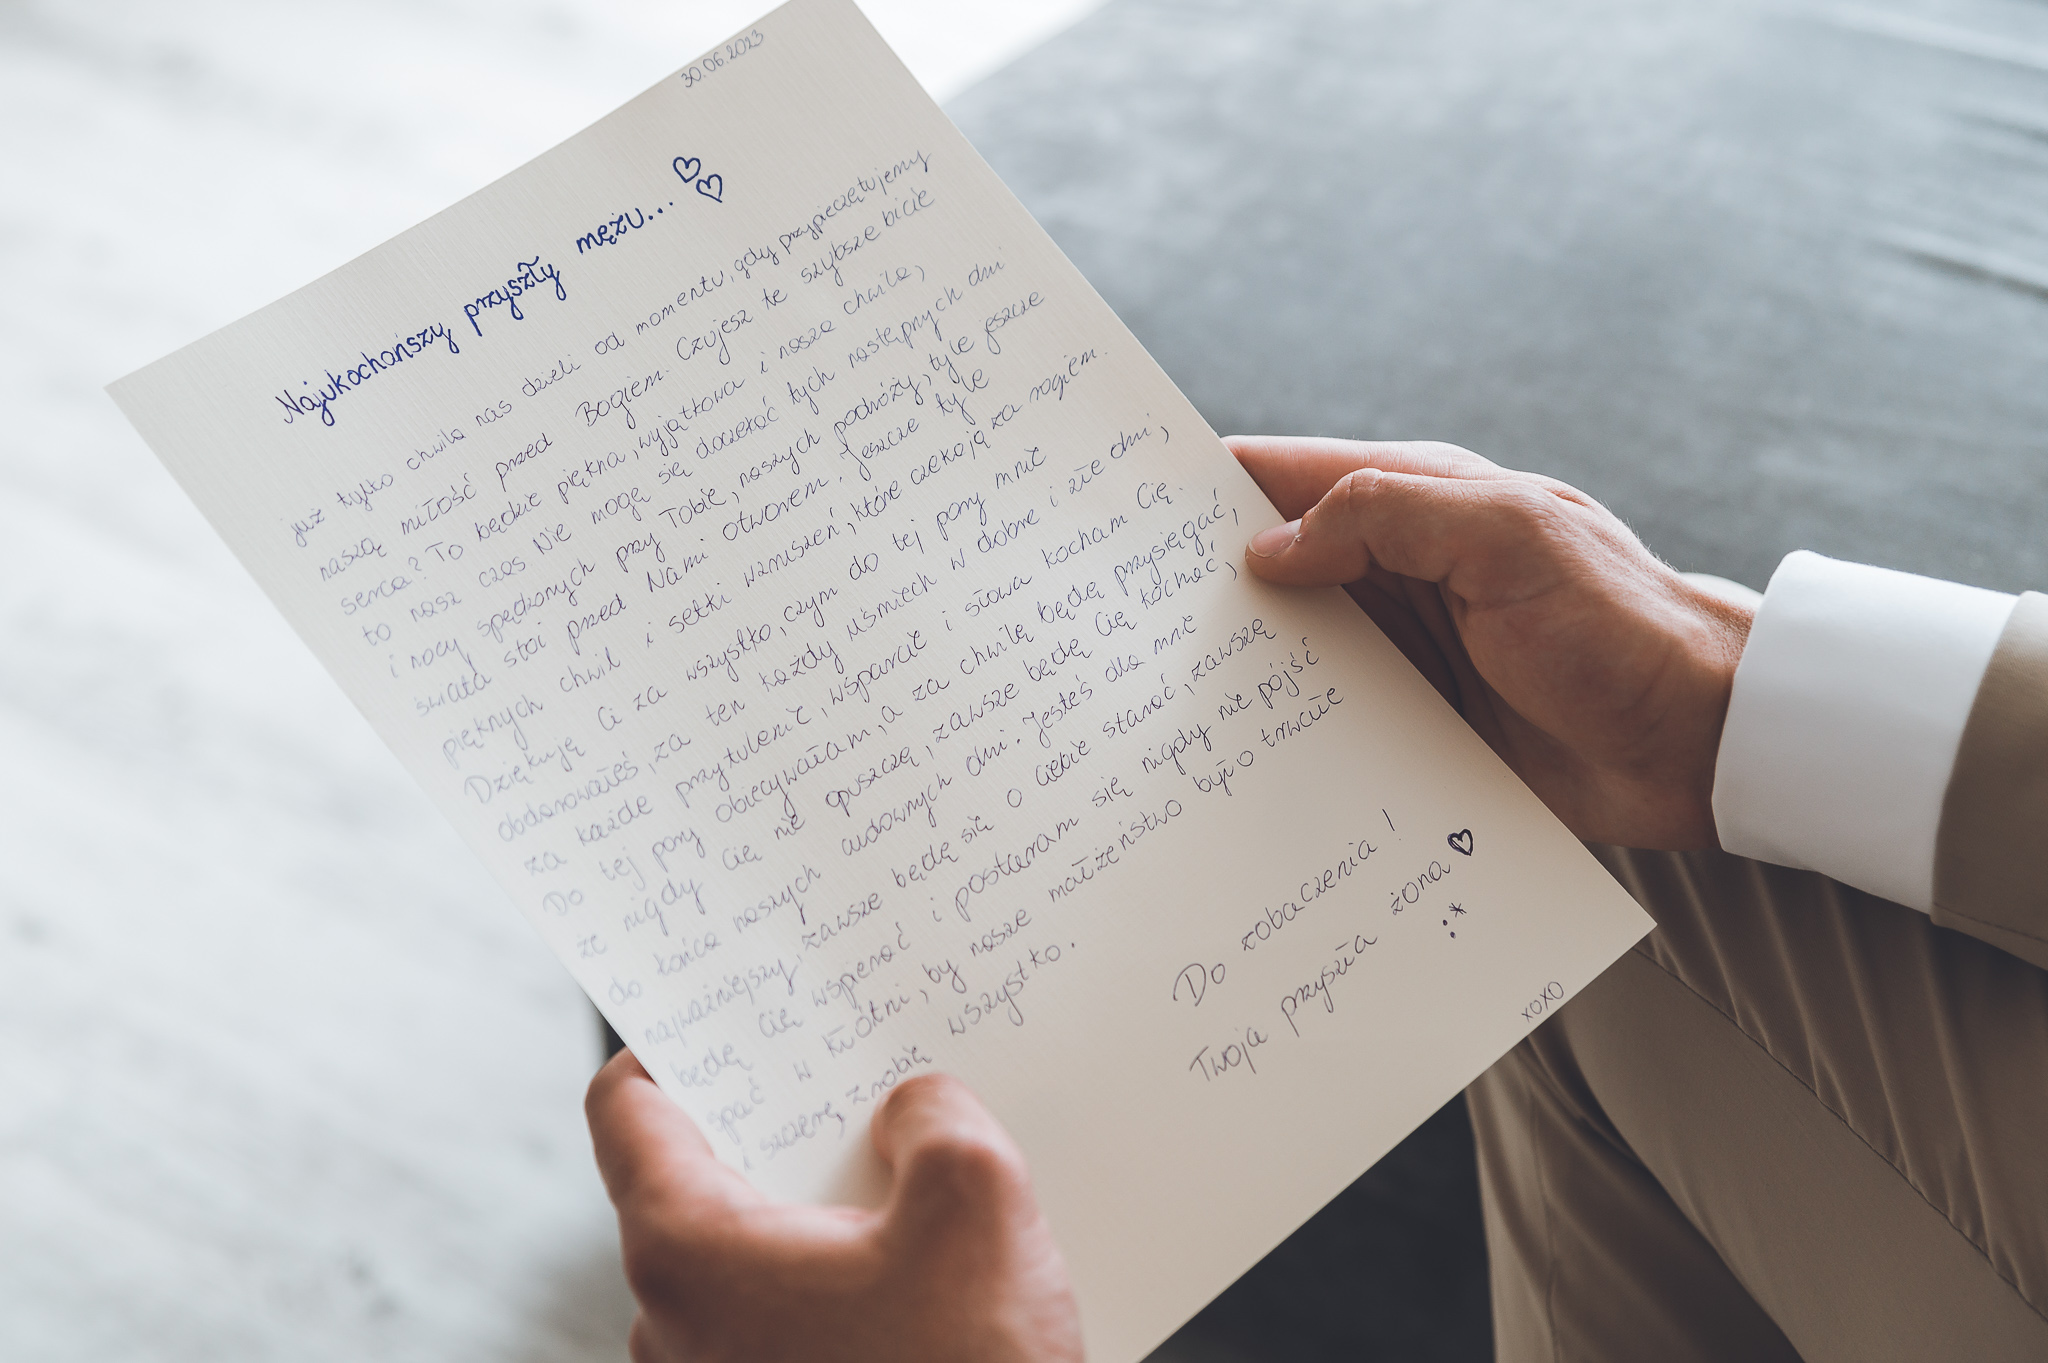 30.06.2023
Najukochańszy przyszły mężu... ♡♡
Już tylko chwila nas dzieli od momentu, gdy przypieczętujemy
naszą miłość przed Bogiem. Czujesz te szybsze bicie
serca? To będzie piękna, wyjątkowa i nasza chwila,
to nasz czas. Nie mogę się doczekać tych następnych dni
i nocy spędzonych przy Tobie, naszych podróży, tyle jeszcze
świata stoi przed Nami otworem. Jeszcze tyle
pięknych chwil i setki wzruszeń, które czekają za rogiem.
Dziękuję Ci za wszystko, czym do tej pory mnie
obdarowałeś, za ten każdy uśmiech w dobre i złe dni,
za każde przytulenie, wsparcie i słowa kocham Cię.
Do tej pory obiecywałam, a za chwilę będę przysięgać,
że nigdy Cię nie opuszczę, zawsze będę Cię kochać,
do końca naszych cudownych dni. Jesteś dla mnie
najważniejszy, zawsze będę się o Ciebie starać, zawszę
będę Cię wspierać i postaram się nigdy nie pójść
spać w kłótni, by nasze małżeństwo było trwałe
i szczere, zrobię wszystko.
Do zobaczenia!
Twoja przyszła żona ♡
:*
xoxo